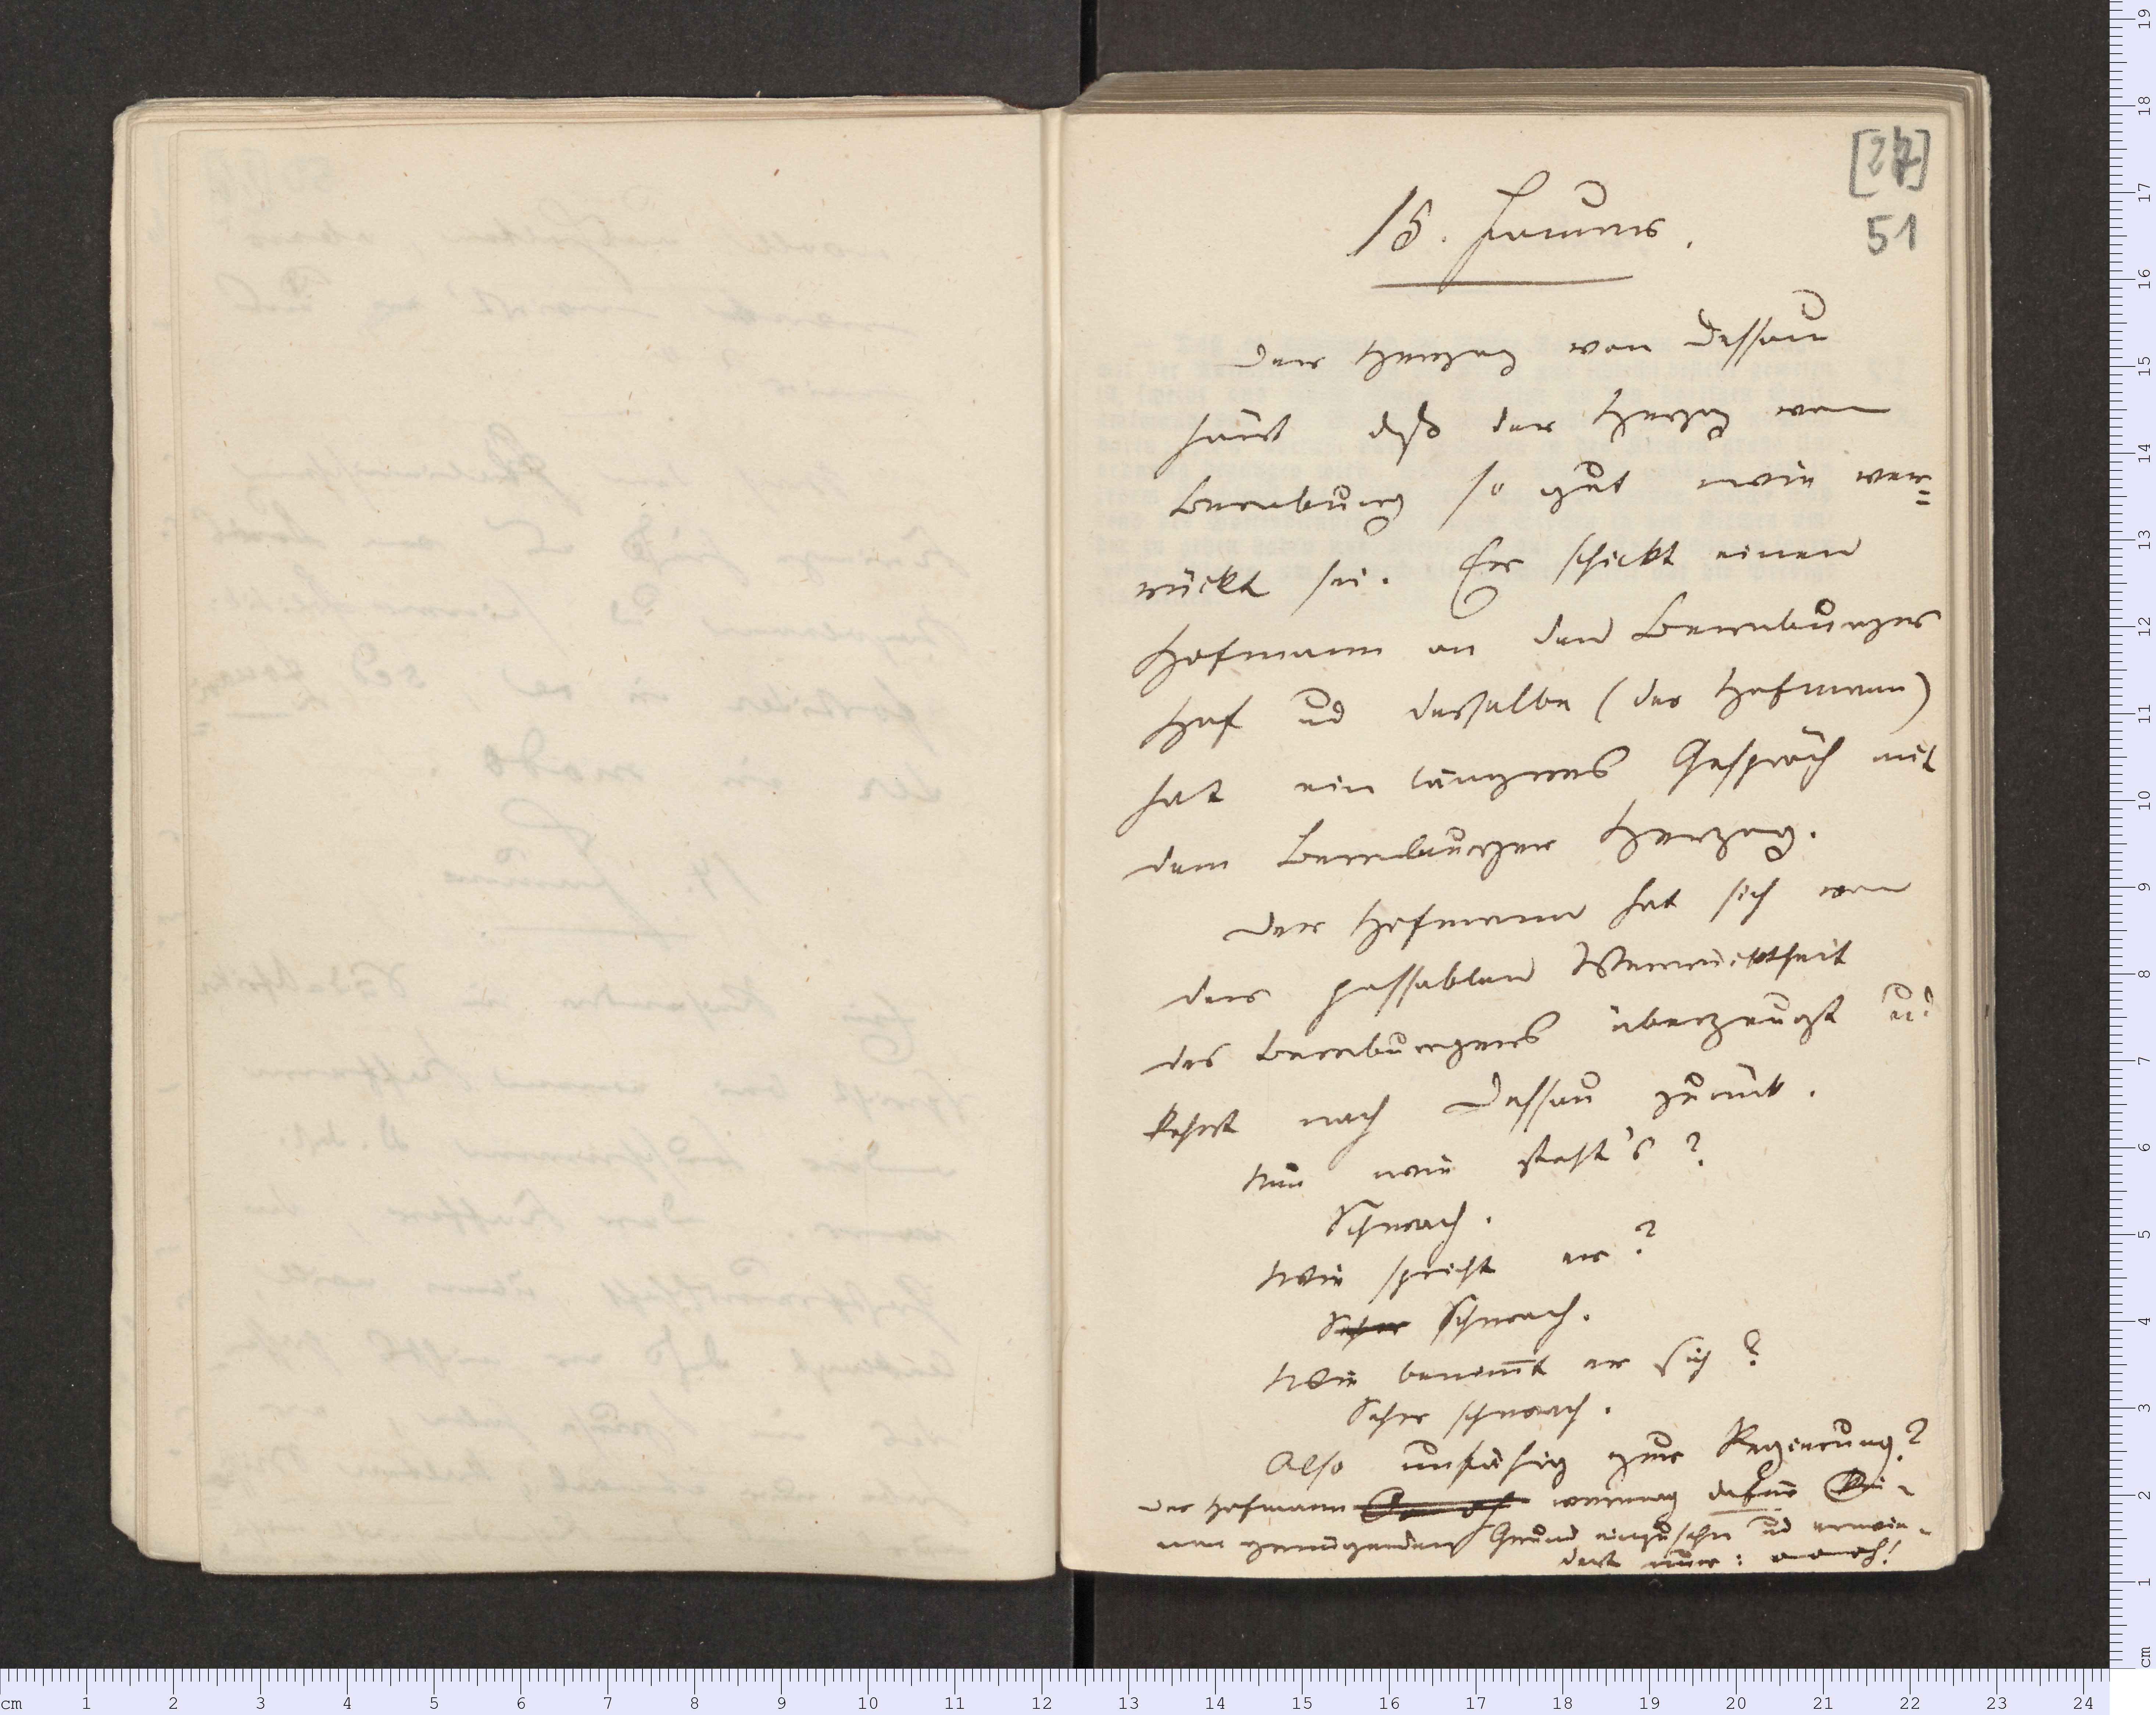 [27]
51
15. Humor.
Der Herzog von Dessau
hört daß der Herzog von
Bernburg so gut wie ver=
rückt sei. Er schickt einen
Hofmann an den Bernburger
Hof ud derselbe (der Hofmann)
hat ein längres Gespräch mit
dem Bernburger Herzog.
Der Hofmann hat sich von
der passablen Verrücktheit
des Bernburgers überzeugt u.
kehrt nach Dessau zurück.
Nun wie steht's?
Schwach.
Wie spricht er?
Sehr Schwach.
Wie benim̄t er sich?
Sehr schwach.
Also unfähig zur Regierung?
Der Hofmann vermag dafür kei-
nen genügenden Grund einzusehn ud erwie-
dert nur: o noch!